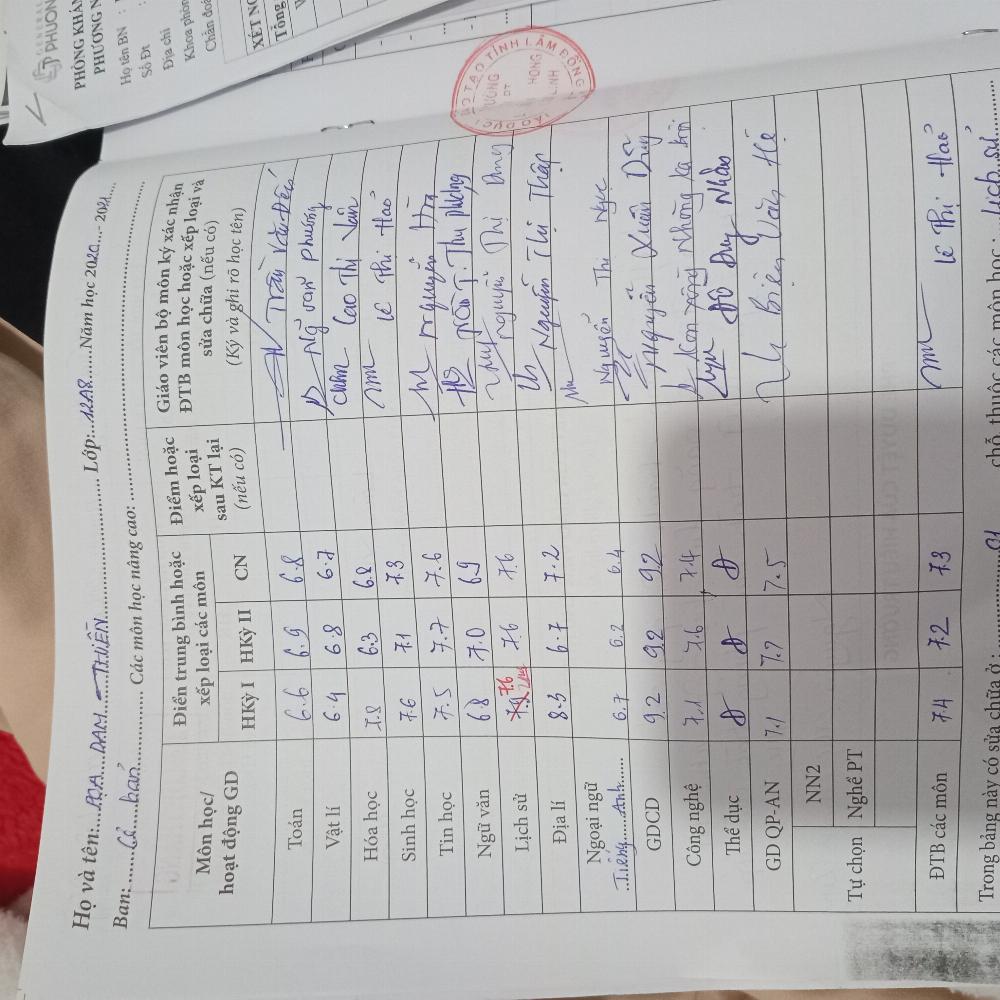 PHÒNG KHÁM
PHƯƠNG N
Họ tên BN :
Số Đt :
Địa chỉ
Khoa phòn
Chẩn đoá
XÉT NG
Tổng
Họ và tên: DAM THUÊN Lớp: 12A8 Năm học 2020 - 2021
Ban: Cơ bản Các môn học nâng cao:
Môn học/ hoạt động GD
Điểm trung bình hoặc xếp loại các môn
HKỳ I HKỳ II CN
Điểm hoặc xếp loại sau KT lại (nếu có)
Giáo viên bộ môn ký xác nhận ĐTB môn học hoặc xếp loại và sửa chữa (nếu có)
(Ký và ghi rõ học tên)
Toán 6.6 6.9 6.8 Trần Văn
Vật lí 6.4 6.8 6.7 Phương
Hóa học 7.8 6.3 6.8 Cao Thị Vân
Sinh học 7.6 7.1 7.3 Lê Thị Hảo
Tin học 7.5 7.7 7.6 Nguyễn Hà
Ngữ văn 6.8 7.0 6.9 Thu Phương
Lịch sử 7.6 7.6 7.6 Nguyễn Thị Dung
Địa lí 8.3 6.7 7.2 Nguyễn Thị Thập
Ngoại ngữ Tiếng Anh 6.7 6.2 6.4 Nguyễn Thị Ngọc
GDCD 9.2 9.2 9.2 Nguyễn Xuân Duy
Công nghệ 7.1 7.6 7.4
Thể dục Đ Đ Đ Đỗ Duy Nhẫn
GD QP-AN 7.1 7.7 7.5 Biện Văn Hệ
Tự chọn
NN2
Nghề PT
ĐTB các môn 7.4 7.2 7.3 Lê Thị Hảo
Trong bảng này có sửa chữa ở: chỗ, thuộc các môn học: Lịch sử
TẠO TỈNH LÂM ĐỒNG